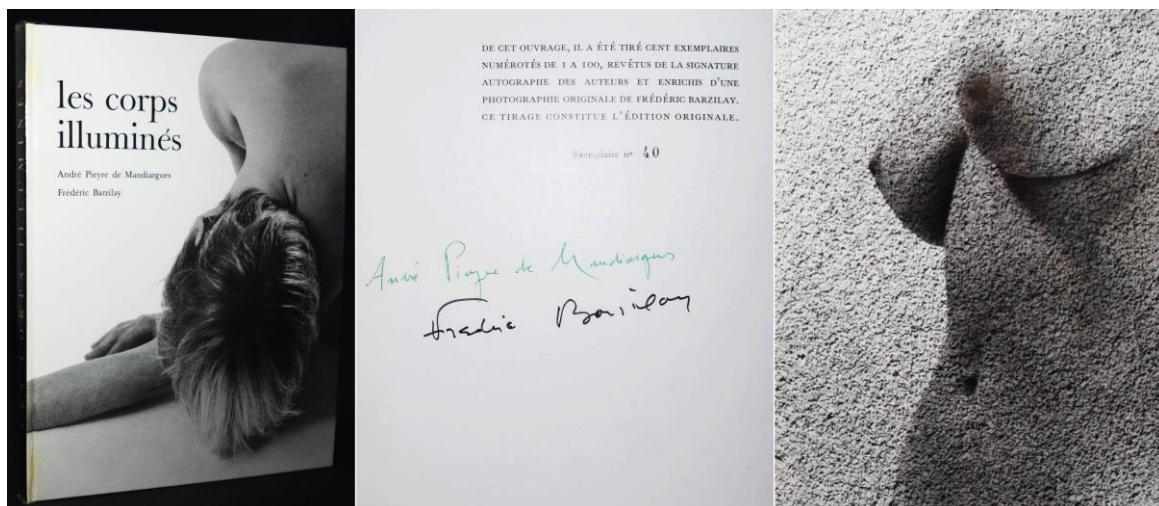 les corps
illuminés
André Pieyre de Mandiargues
Frédéric Barzilay
LES CORPS ILLUMINÉS
DE CET OUVRAGE, IL A ÉTÉ TIRÉ CENT EXEMPLAIRES
NUMÉROTÉS DE 1 A 100, REVÊTUS DE LA SIGNATURE
AUTOGRAPHE DES AUTEURS ET ENRICHIS D'UNE
PHOTOGRAPHIE ORIGINALE DE FRÉDÉRIC BARZILAY.
CE TIRAGE CONSTITUE L'ÉDITION ORIGINALE.
Exemplaire nº 40
André Pieyre de Mandiargues
Frédéric Barzilay